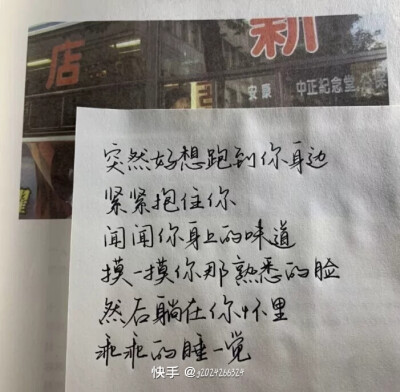 店
新
安康
中正紀念堂
突然好想跑到你身边
紧紧抱住你
闻闻你身上的味道
摸一摸你那熟悉的脸
然后躺在你怀里
乖乖的睡一觉
快手 @g2024266524